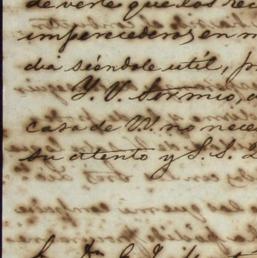 de verle que los rec
imperecederos en m
dia siéndole útil, pr
Y. V. termio, a
casa de V. no nece
su atento y S. S. Q